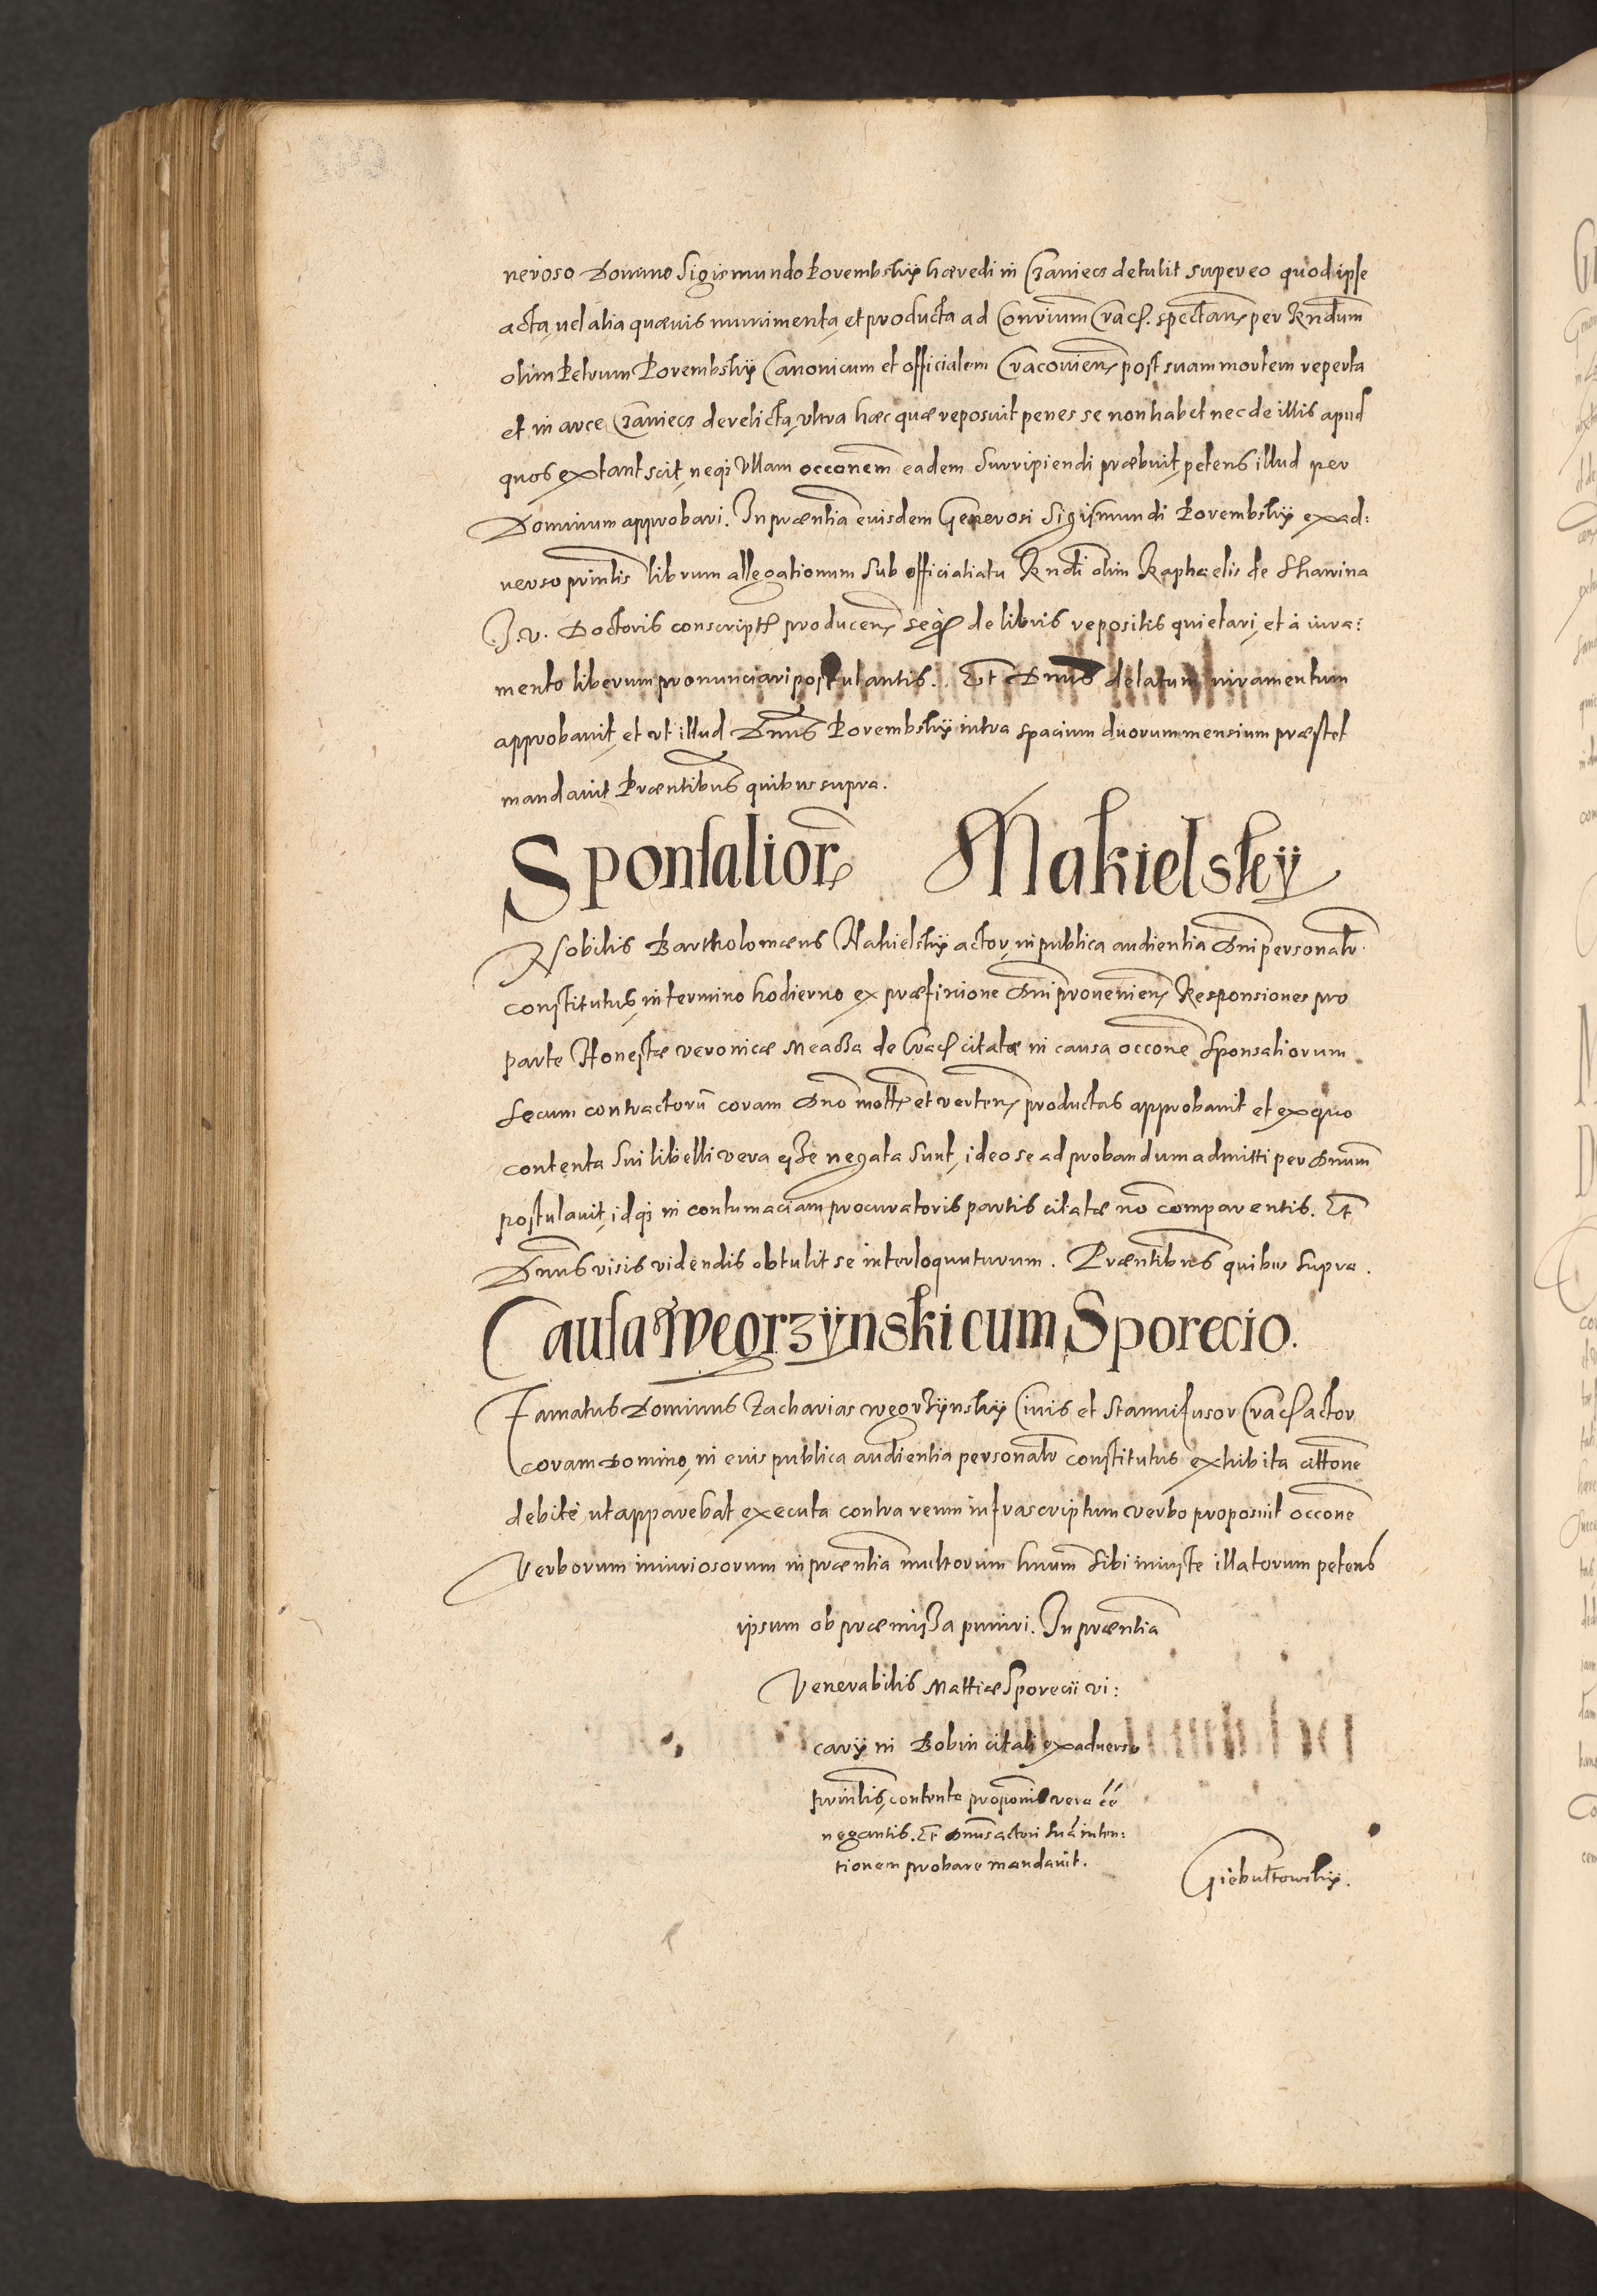 neroso Domino Sigismundo Porembskÿ hæredi in Czaniecz detulit super eo quod ipse
acta, uel alia quæuis munimenta, et producta ad Consrium Crac. spectan per Rndum
olim Petrum Porembskÿ Canonicum et officialem Cracouien post suam mortem reperta
et in arce Czaniecz derelicta, vltra hæc quæ reposuit penes se non habet nec de illis apud
quos extant scit, neq; vllam occonem eadem surripiendi præbuit, petens illud per
Dominum approbari. In præntia eiusdem Generosi Sigismundi Porembskÿ ex ad:
uerso prinlis librum allegationum sub officialiatu Rndi olim Raphaelis de Skawina
J. v. Doctoris conscript producen seq de libris repositis quietari, et à iura:
mento liberum pronunciari postulantis. Et Dnus delatum iuramentum
approbauit, et vt illud Dnus Porembskÿ intra spacium duorum mensium præstet
mandauit Præntibus quibus supra.
Sponsalior Nakielskÿ
Nobilis Bartholomæus Nakielskÿ actor, in publica audientia Dni personalr
constitutus, in termino hodierno ex præfinione Dni prouenien Responsiones pro
parte Honestæ Veronicæ Meassa de Crac citatæ in causa occone sponsaliorum
secum contractorū coram Dno mott et verten productas approbauit et ex quo
contenta sui libelli vera esse negata sunt, ideo se ad probandum admitti per Dnum
postulauit, idq; in contumaciam procuratoris partis citatæ nō comparentis. Et
Dnus visis videndis obtulit se interloquuturum. Præntibus quibus supra.
Causa Wegrzÿnski cum Sporecio.
Famatus Dominus Zacharias Wegrzÿnskÿ Ciuis et Stannifusor Crac actor
coram Domino, in eius publica audientia personalr constitutus exhibita cittone
debitè ut apparebat executa contra reum infrascriptum verbo proposuit occone
Verborum iniuriosorum in præntia multorum hnum sibi iniuste illatorum petens
ipsum ob præmissa puniri. In præntia
Venerabilis Mattiæ Sporecii vi:
carÿ in Bobin citati ex aduerso
prinlis, contenta proponis vera eē
negantis. Et Dnus actori suā inten:
tionem probare mandauit.
Giebułtowskÿ.